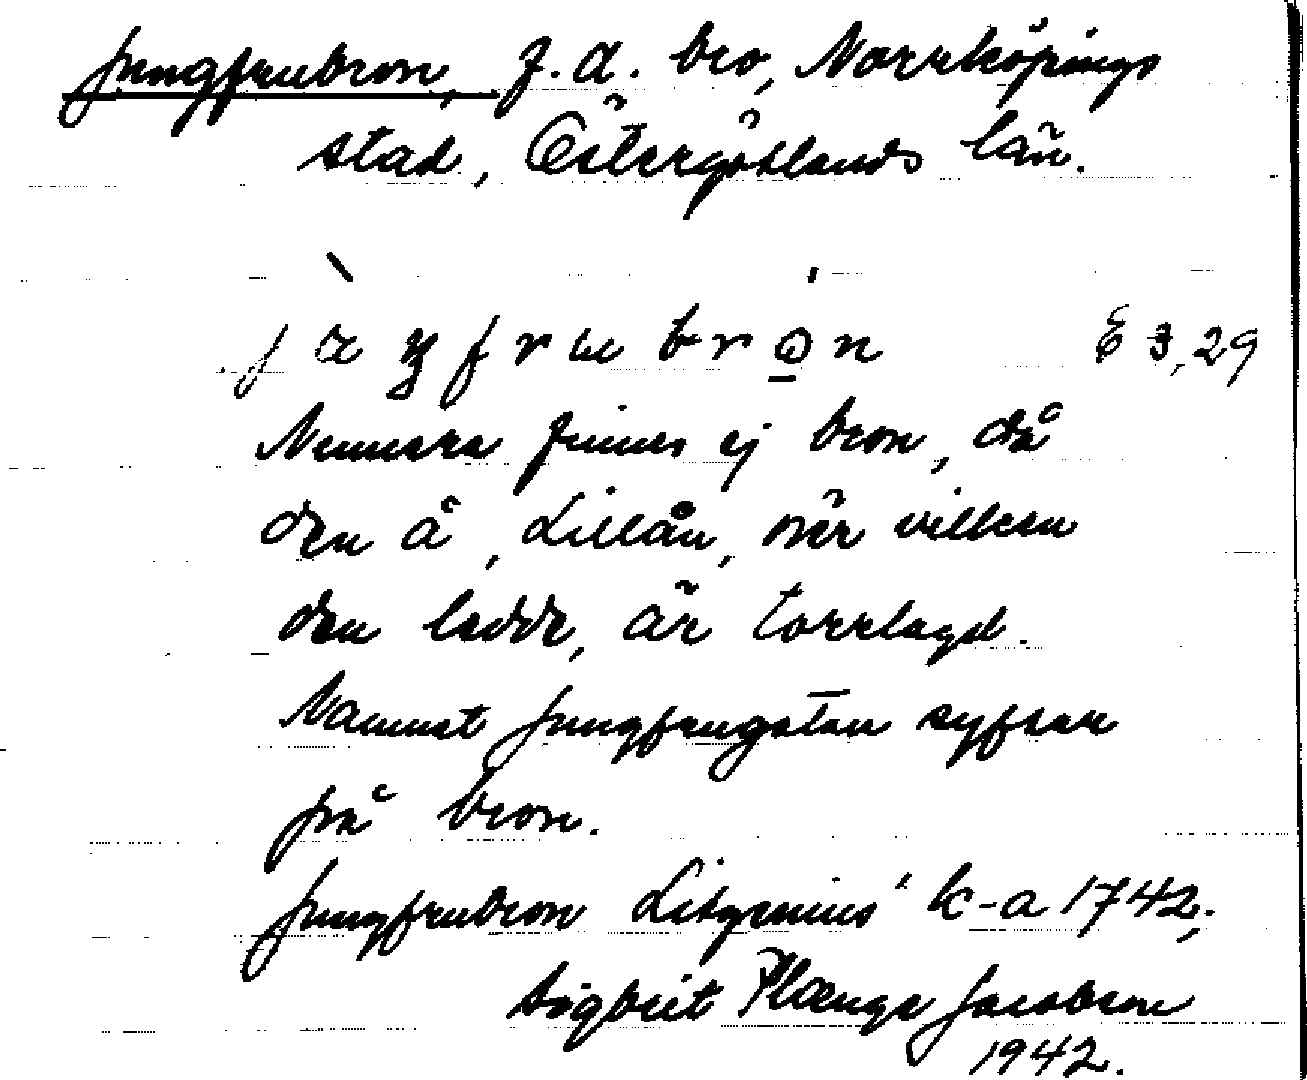 Jungfrubron, f.d. bro, Norrköpings
stad, Östergötlands län.
E 3,29
Numera finnes ej bron, då
den å, Lillån, över vilken
den ledde, är torrlagd.
Namnet Jungfrugatan syftar
på bron.
Jungfrubron Lidgrenius' k-a 1742.
Sigbrit Plænge Jacobson
1942.